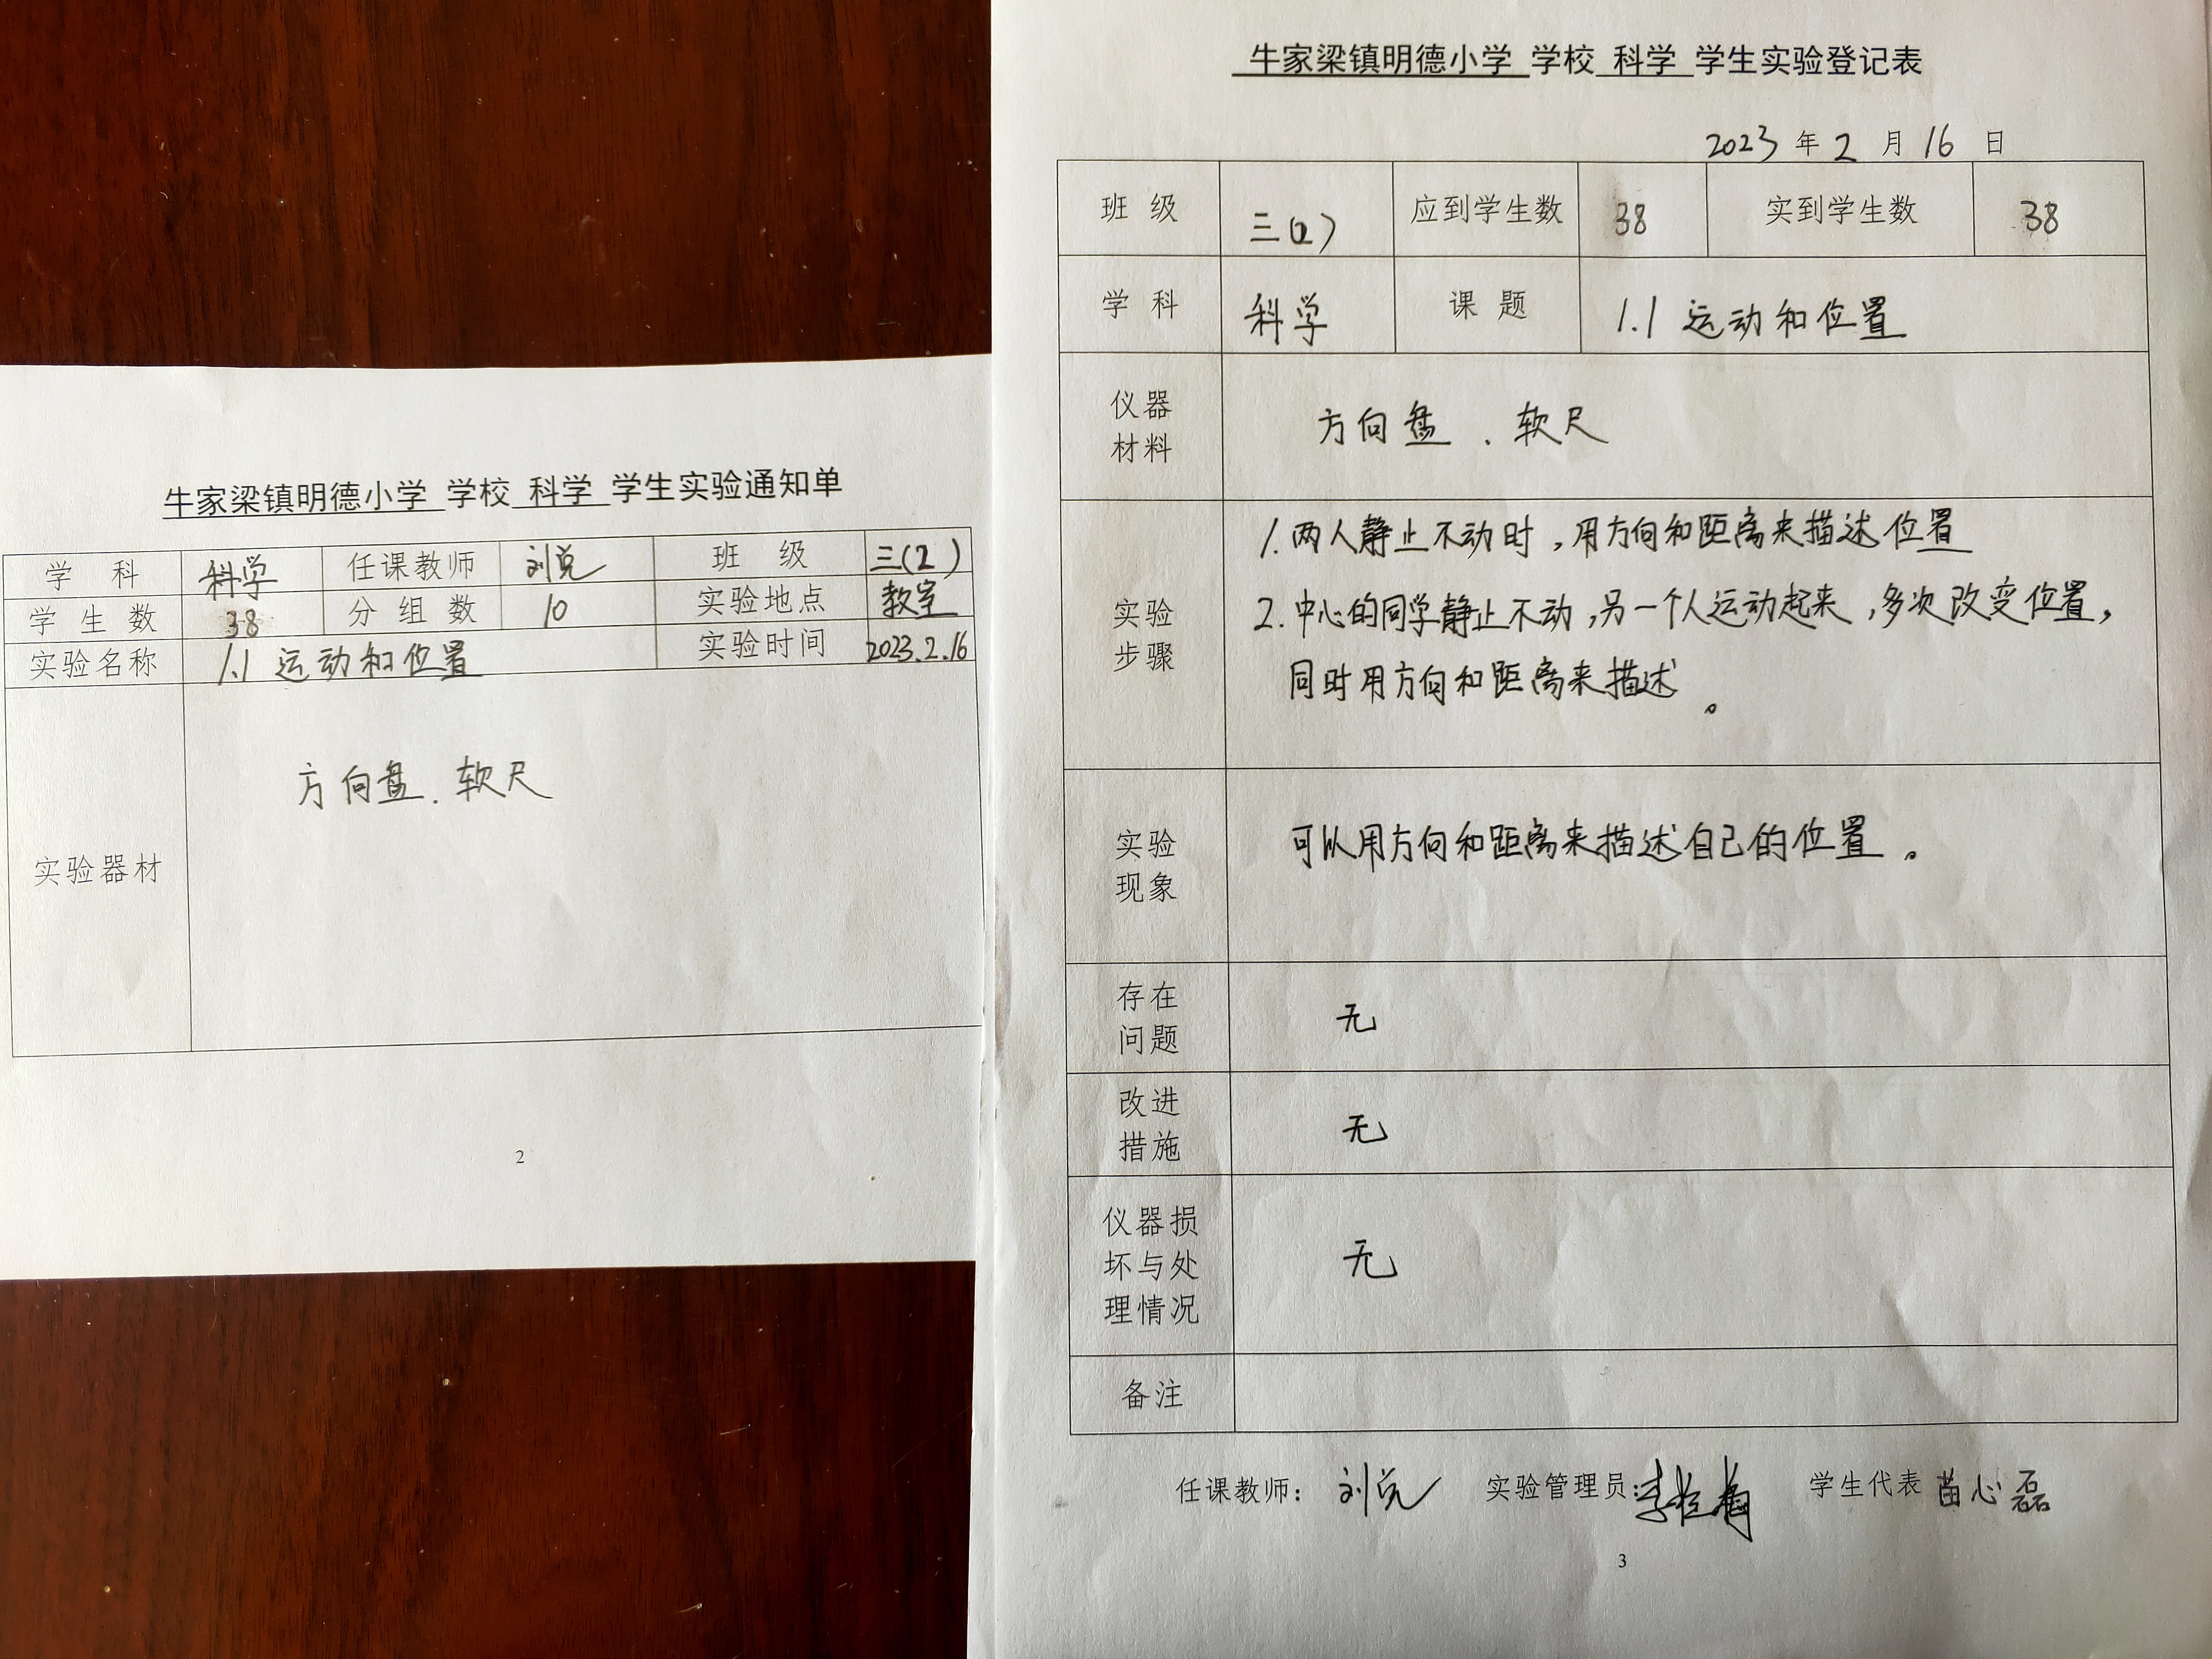 牛家梁镇明德小学 学校 科学 学生实验通知单
学 科 科学 任课教师 刘党 班 级 三(2)
学生数 38 分组数 10 实验地点 教室
实验名称 1.1 运动和位置 实验时间 2023.2.16
实验器材 方向盘、软尺
2
牛家梁镇明德小学 学校 科学 学生实验登记表
2023 年 2 月 16 日
班 级 三(2) 应到学生数 38 实到学生数 38
学 科 科学 课 题 1.1 运动和位置
仪器
材料
方向盘 、软尺
实验
步骤
1.两人静止不动时,用方向和距离来描述位置
2.中心的同学静止不动,另一个人运动起来,多次改变位置,
同时用方向和距离来描述。
实验
现象
可以用方向和距离来描述自己的位置。
存在
问题
无
改进
措施
无
仪器损
坏与处
理情况
无
备注
任课教师: 刘党 实验管理员: 学生代表 苗心磊
3